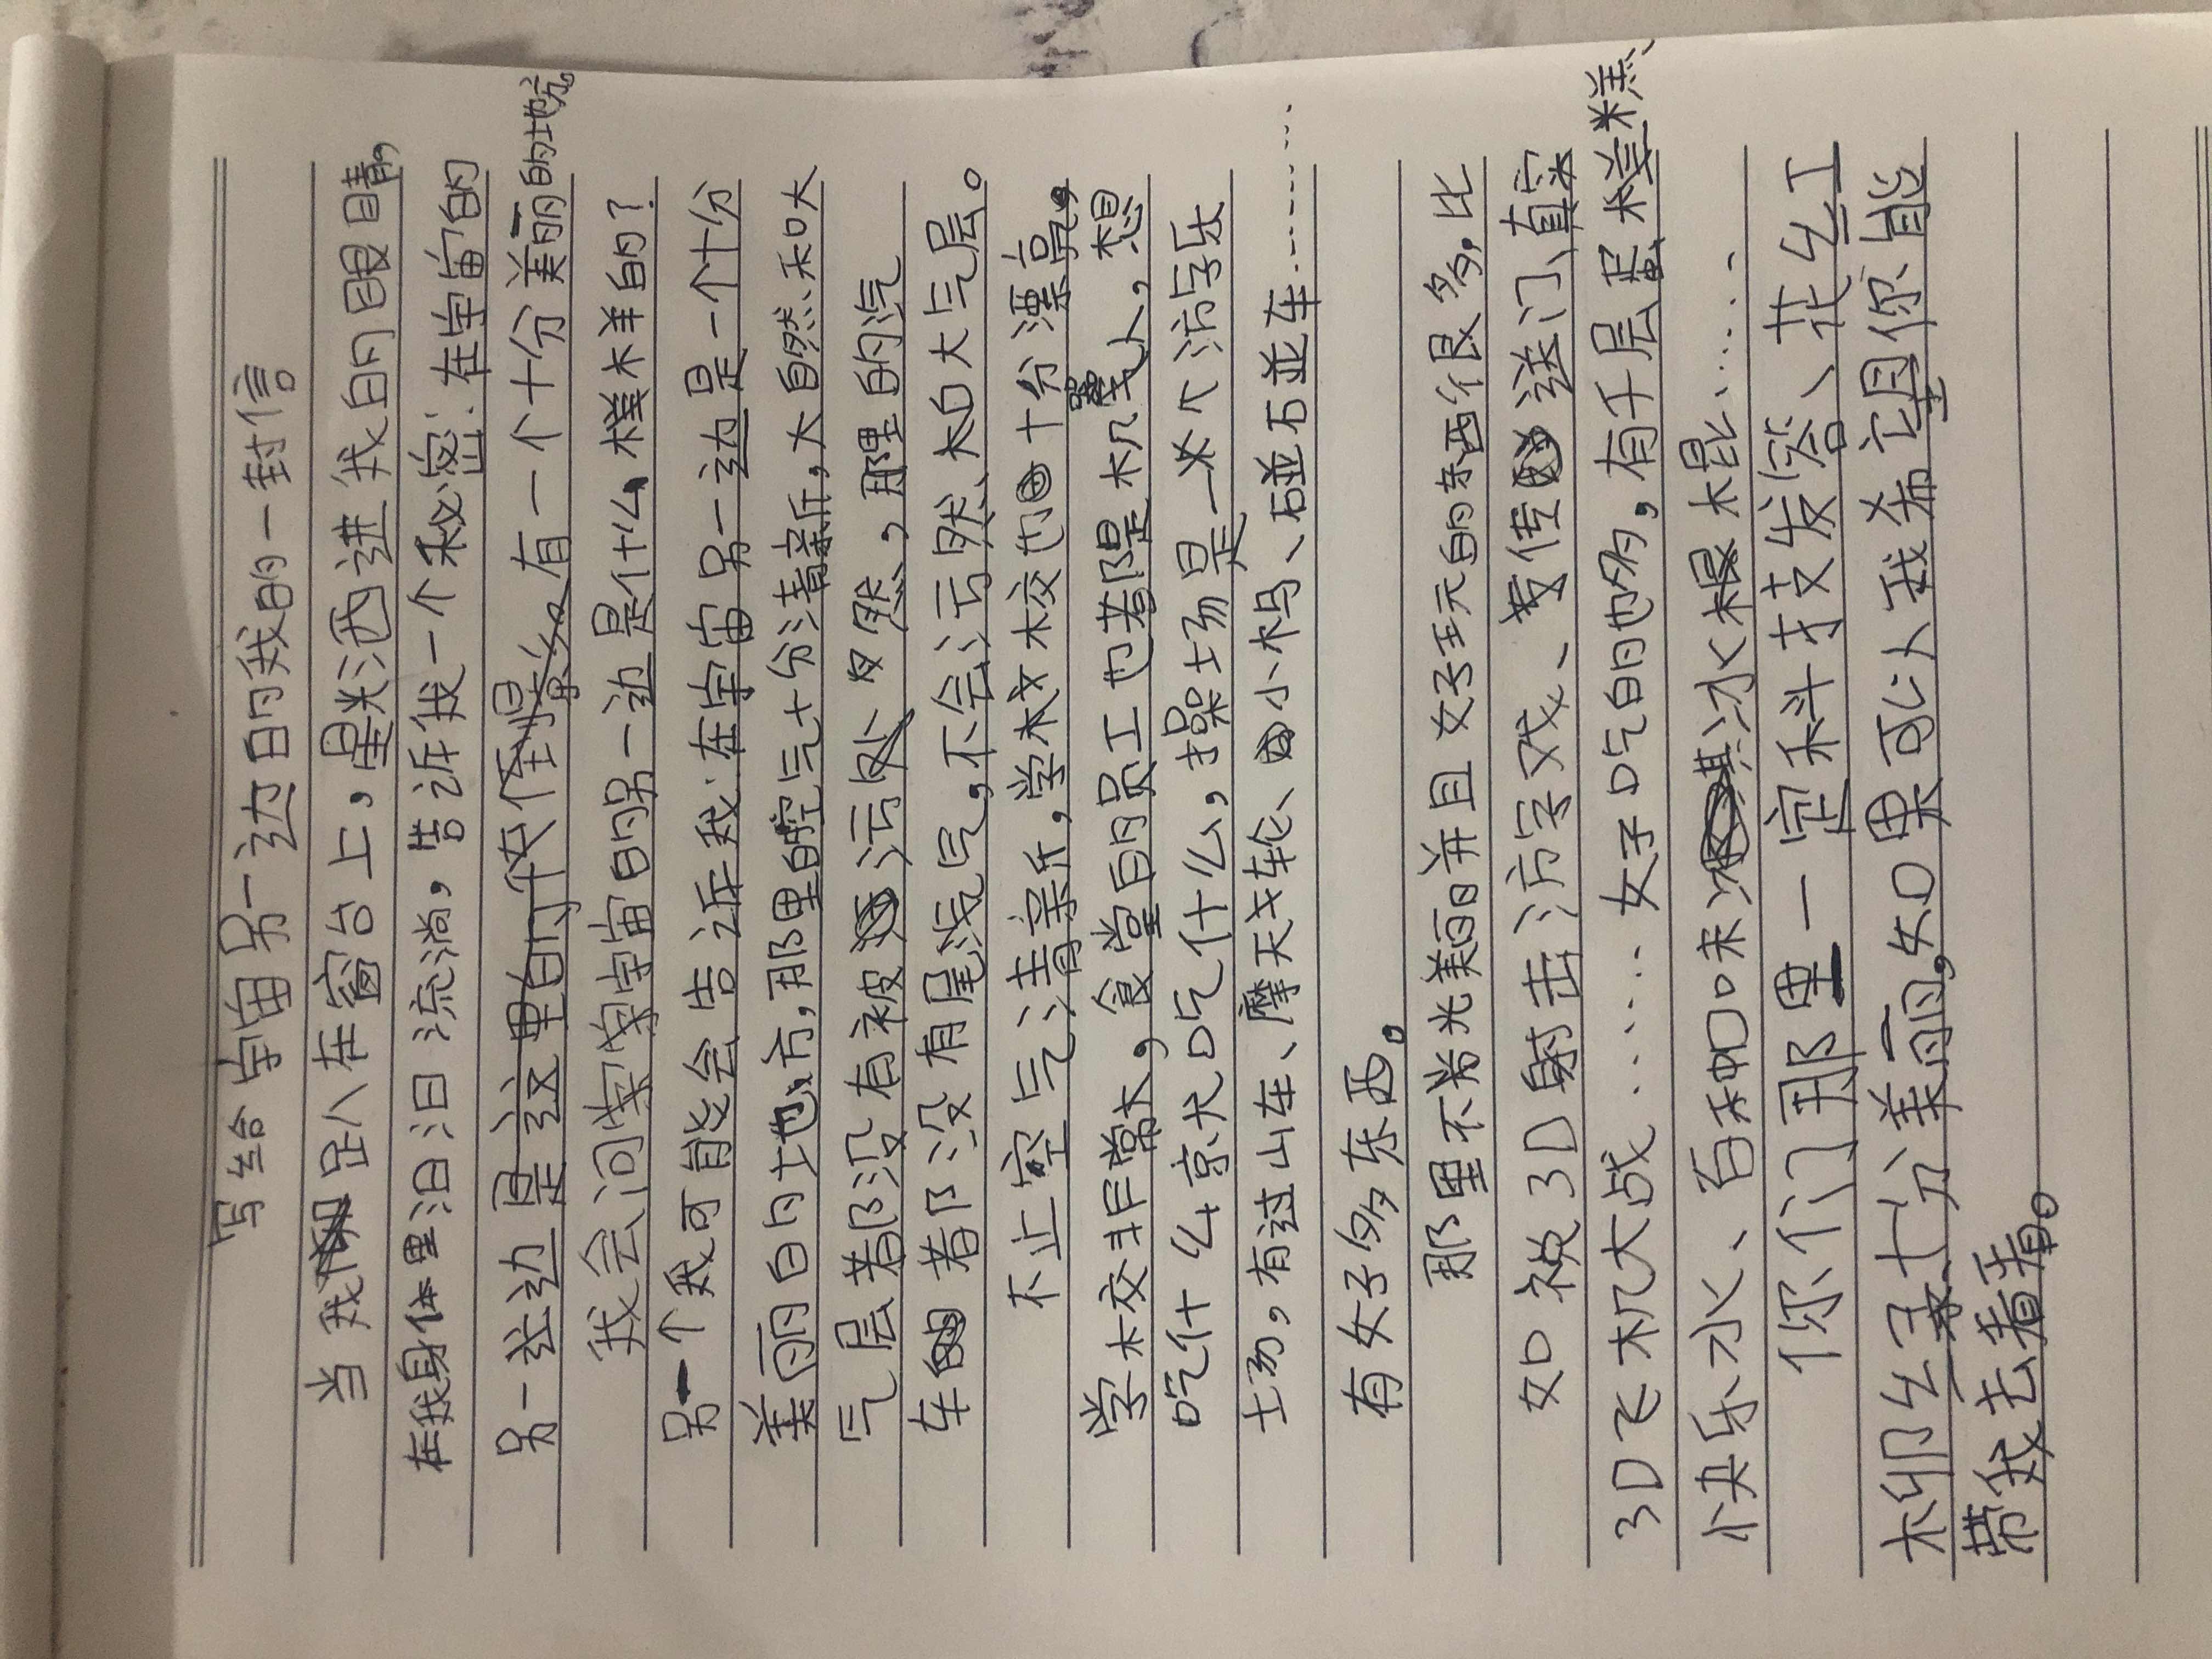 写给宇宙另一边的我的一封信
当我趴在窗台上，星光洒进我的眼睛，
在我身体里汩汩流淌，告诉我一个秘密：在宇宙的
另一边是这里的倒影，有一个十分美丽的地方。
我会问宇宙的另一边是什么样的？
另一个我可能会告诉我：在宇宙另一边是一个十分
美丽的地方，那里的空气十分清新，大自然和大
气层都没有被污染，那里的汽
车都没有尾气，不会污染大自然和大气层。
不止空气清新，学校也十分漂亮，
学校非常大，食堂的员工也都是机器人，想
吃什么就吃什么，操场是一个游乐
场，有过山车、摩天轮、小木马、碰碰车……
有好多东西。
那里不光美丽并且好玩的东西很多，比
如说3D射击游戏、传送门、真实
3D飞机大战……好吃的也多，有千层蛋糕、
快乐水、百种口味冰淇淋冰棍……
你们那里一定科技发达、花红
柳绿、十分美丽，如果可以我希望你能
带我去看看。